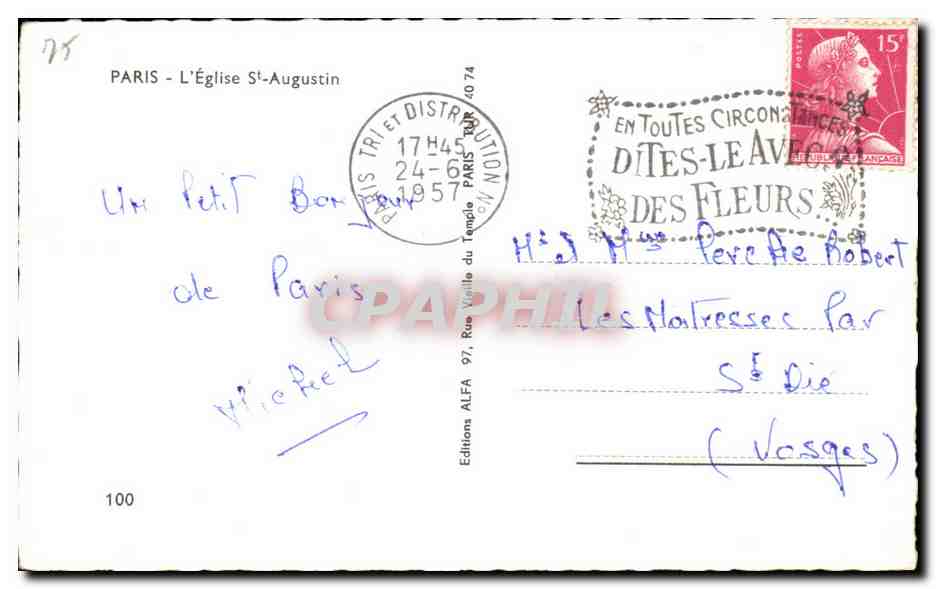 75
PARIS - L'Église St-Augustin
PARIS TRI ET DISTRIBUTION No
17H45
24-6
1957
EN TOUTES CIRCONSTANCES
DITES-LE AVEC
DES FLEURS..
POSTES
15F
REPUBLIQUE FRANÇAISE
Un Petit Bonjour
de Paris
Michel
Mr & Mme Robert
Les Matresses Par
St Dié
(Vosges)
Editions ALFA 97, Rue Vieille du Temple PARIS TUR. 40 74
CPAPHIL
100